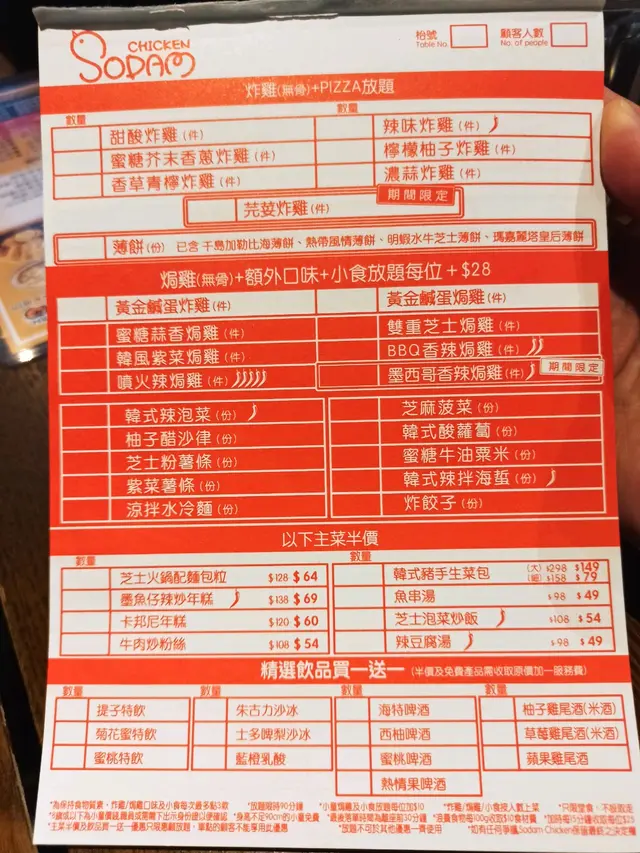 CHICKEN
SODAM
枱號
Table No.
顧客人數
No. of people
炸雞(無骨)+PIZZA放題
數量
數量
甜酸炸雞(件)
辣味炸雞(件)
蜜糖芥末香蔥炸雞(件)
檸檬柚子炸雞(件)
香草青檸炸雞(件)
濃蒜炸雞(件)
期間限定
芫荽炸雞(件)
薄餅(份) 已含 千島加勒比海薄餅、熱帶風情薄餅、明蝦水牛芝士薄餅、瑪嘉麗塔皇后薄餅
焗雞(無骨)+額外口味+小食放題每位+$28
黃金鹹蛋炸雞(件)
黃金鹹蛋焗雞(件)
蜜糖蒜香焗雞(件)
雙重芝士焗雞(件)
韓風紫菜焗雞(件)
BBQ香辣焗雞(件)
噴火辣焗雞(件)
墨西哥香辣焗雞(件)
期間限定
韓式辣泡菜(份)
芝麻菠菜(份)
柚子醋沙律(份)
韓式酸蘿蔔(份)
芝士粉薯條(份)
蜜糖牛油粟米(份)
紫菜薯條(份)
韓式辣拌海蜇(份)
涼拌水冷麵(份)
炸餃子(份)
以下主菜半價
數量
數量
芝士火鍋配麵包粒 $128 $64
韓式豬手生菜包 (大) $298 $149
(細) $158 $79
墨魚仔辣炒年糕 $138 $69
魚串湯 $98 $49
卡邦尼年糕 $120 $60
芝士泡菜炒飯 $108 $54
牛肉炒粉絲 $108 $54
辣豆腐湯 $98 $49
精選飲品買一送一 (半價及免費產品需收取原價加一服務費)
數量
數量
數量
數量
提子特飲
朱古力沙冰
海特啤酒
柚子雞尾酒(米酒)
菊花蜜特飲
士多啤梨沙冰
西柚啤酒
草莓雞尾酒(米酒)
蜜桃特飲
藍橙乳酸
蜜桃啤酒
蘋果雞尾酒
熱情果啤酒
*為保持食物質素，炸雞/焗雞口味及小食每次最多點3款
*放題限時90分鐘
*小童焗雞及小食放題每位加$10
*炸雞/焗雞/小食按人數上菜
*只限堂食，不設取走
*身高不足90cm的小童免費
*最後落單時間為離座前30分鐘
*浪費食物每100g收取$10食材費
*加時每15分鐘收取每位$25
*主菜半價及飲品買一送一優惠只限惠顧放題，單點的顧客不能享用此優惠
*放題不可於其他優惠一齊使用
*如有任何爭議Sodam Chicken保留最終之決定權